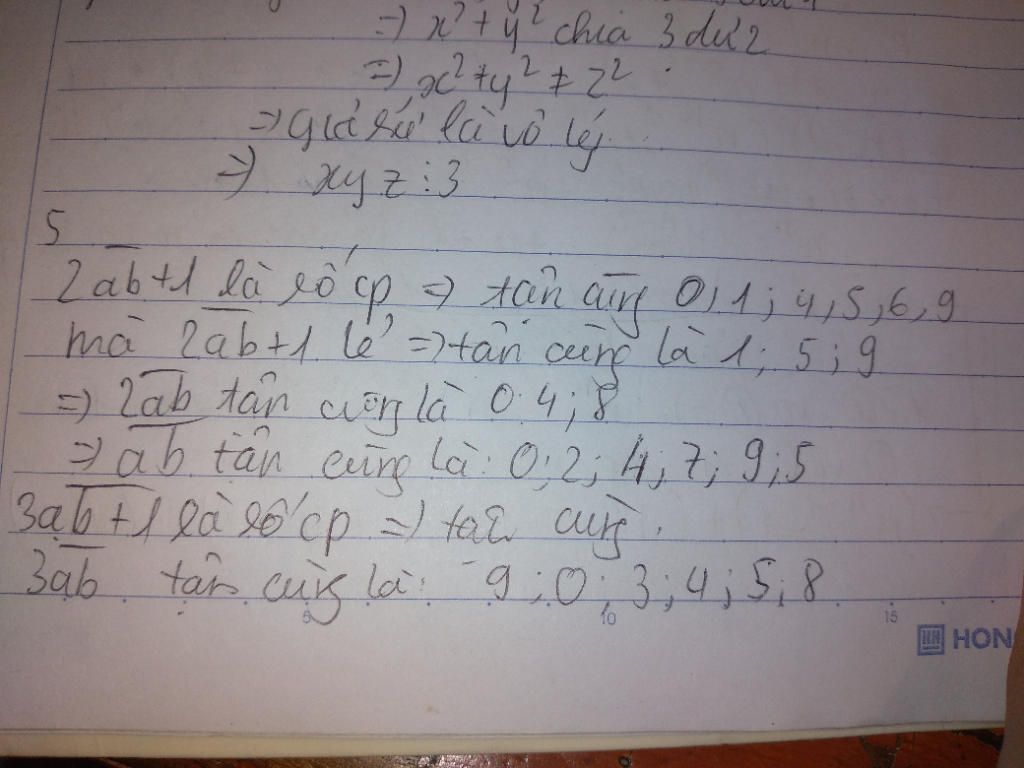 => x² + y² chia 3 dư 2
=> x² + y² ≠ z²
=> giả sử là vô lý.
=> xyz ⋮ 3
5
2a̅b̅+1 là số cp => tận cùng 0, 1; 4, 5, 6, 9
mà 2a̅b̅+1 lẻ => tận cùng là 1; 5; 9
=> 2a̅b̅ tận cùng là 0; 4; 8
=> a̅b̅ tận cùng là: 0; 2; 4; 7; 9; 5
3a̅b̅+1 là số cp => tận cùng.
3a̅b̅ tận cùng là: 9; 0; 3; 4; 5; 8
5 10 15
HON